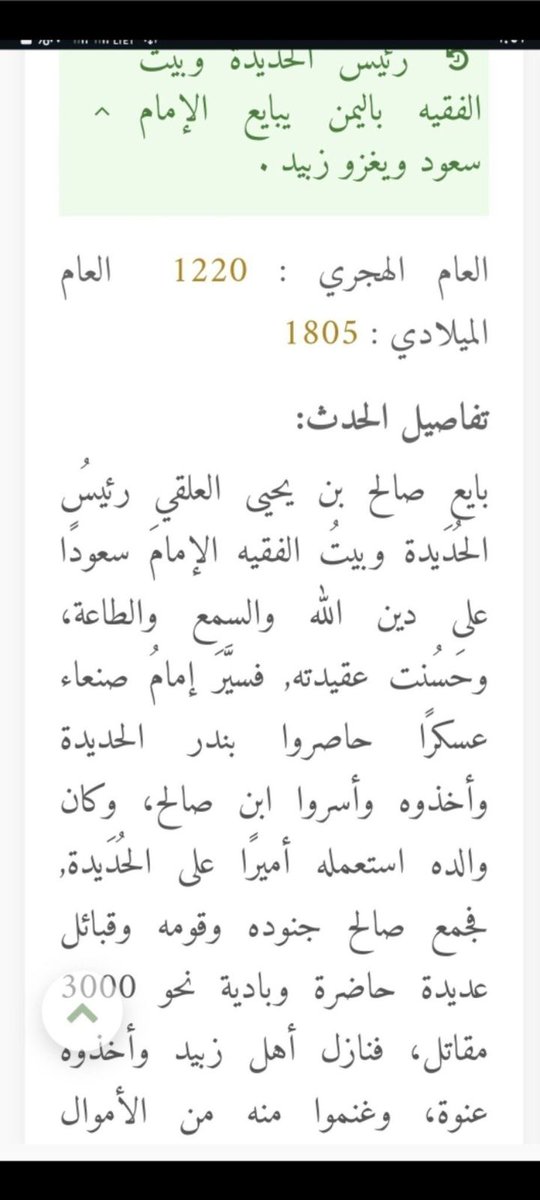 رئيس الحديدة وبيت
الفقيه باليمن يبايع الإمام
سعود ويغزو زبيد .
العام الهجري : 1220 العام
الميلادي : 1805
تفاصيل الحدث:
بايع صالح بن يحيى العلقي رئيسُ
الحُدَيدة وبيتُ الفقيه الإمامَ سعودًا
على دين الله والسمع والطاعة،
وحَسُنت عقيدته, فسيَّرَ إمامُ صنعاء
عسكرًا حاصروا بندر الحديدة
وأخذوه وأسروا ابن صالح، وكان
والده استعمله أميرًا على الحُدَيدة,
فجمع صالح جنوده وقومه وقبائل
عديدة حاضرة وبادية نحو 3000
مقاتل، فنازل أهل زبيد وأخذوه
عنوة، وغنموا منه من الأموال